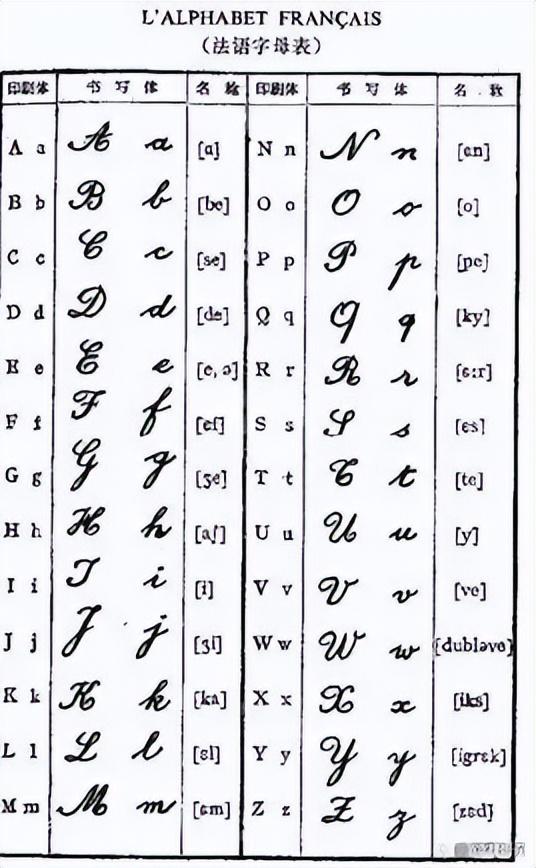 L'ALPHABET FRANÇAIS
(法语字母表)
印刷体 书写体 名称 印刷体 书写体 名称
A a A a [a] N n N n [ɛn]
B b B b [be] O o O o [o]
C c C c [se] P p P p [pe]
D d D d [de] Q q Q q [ky]
E e E e [e, ə] R r R r [ɛːr]
F f F f [ɛf] S s S s [ɛs]
G g G g [ʒe] T t T t [te]
H h H h [aʃ] U u U u [y]
I i I i [i] V v V v [ve]
J j J j [ʒi] W w W w [dubləve]
K k K k [ka] X x X x [iks]
L l L l [ɛl] Y y Y y [igrɛk]
M m M m [ɛm] Z z Z z [zɛd]